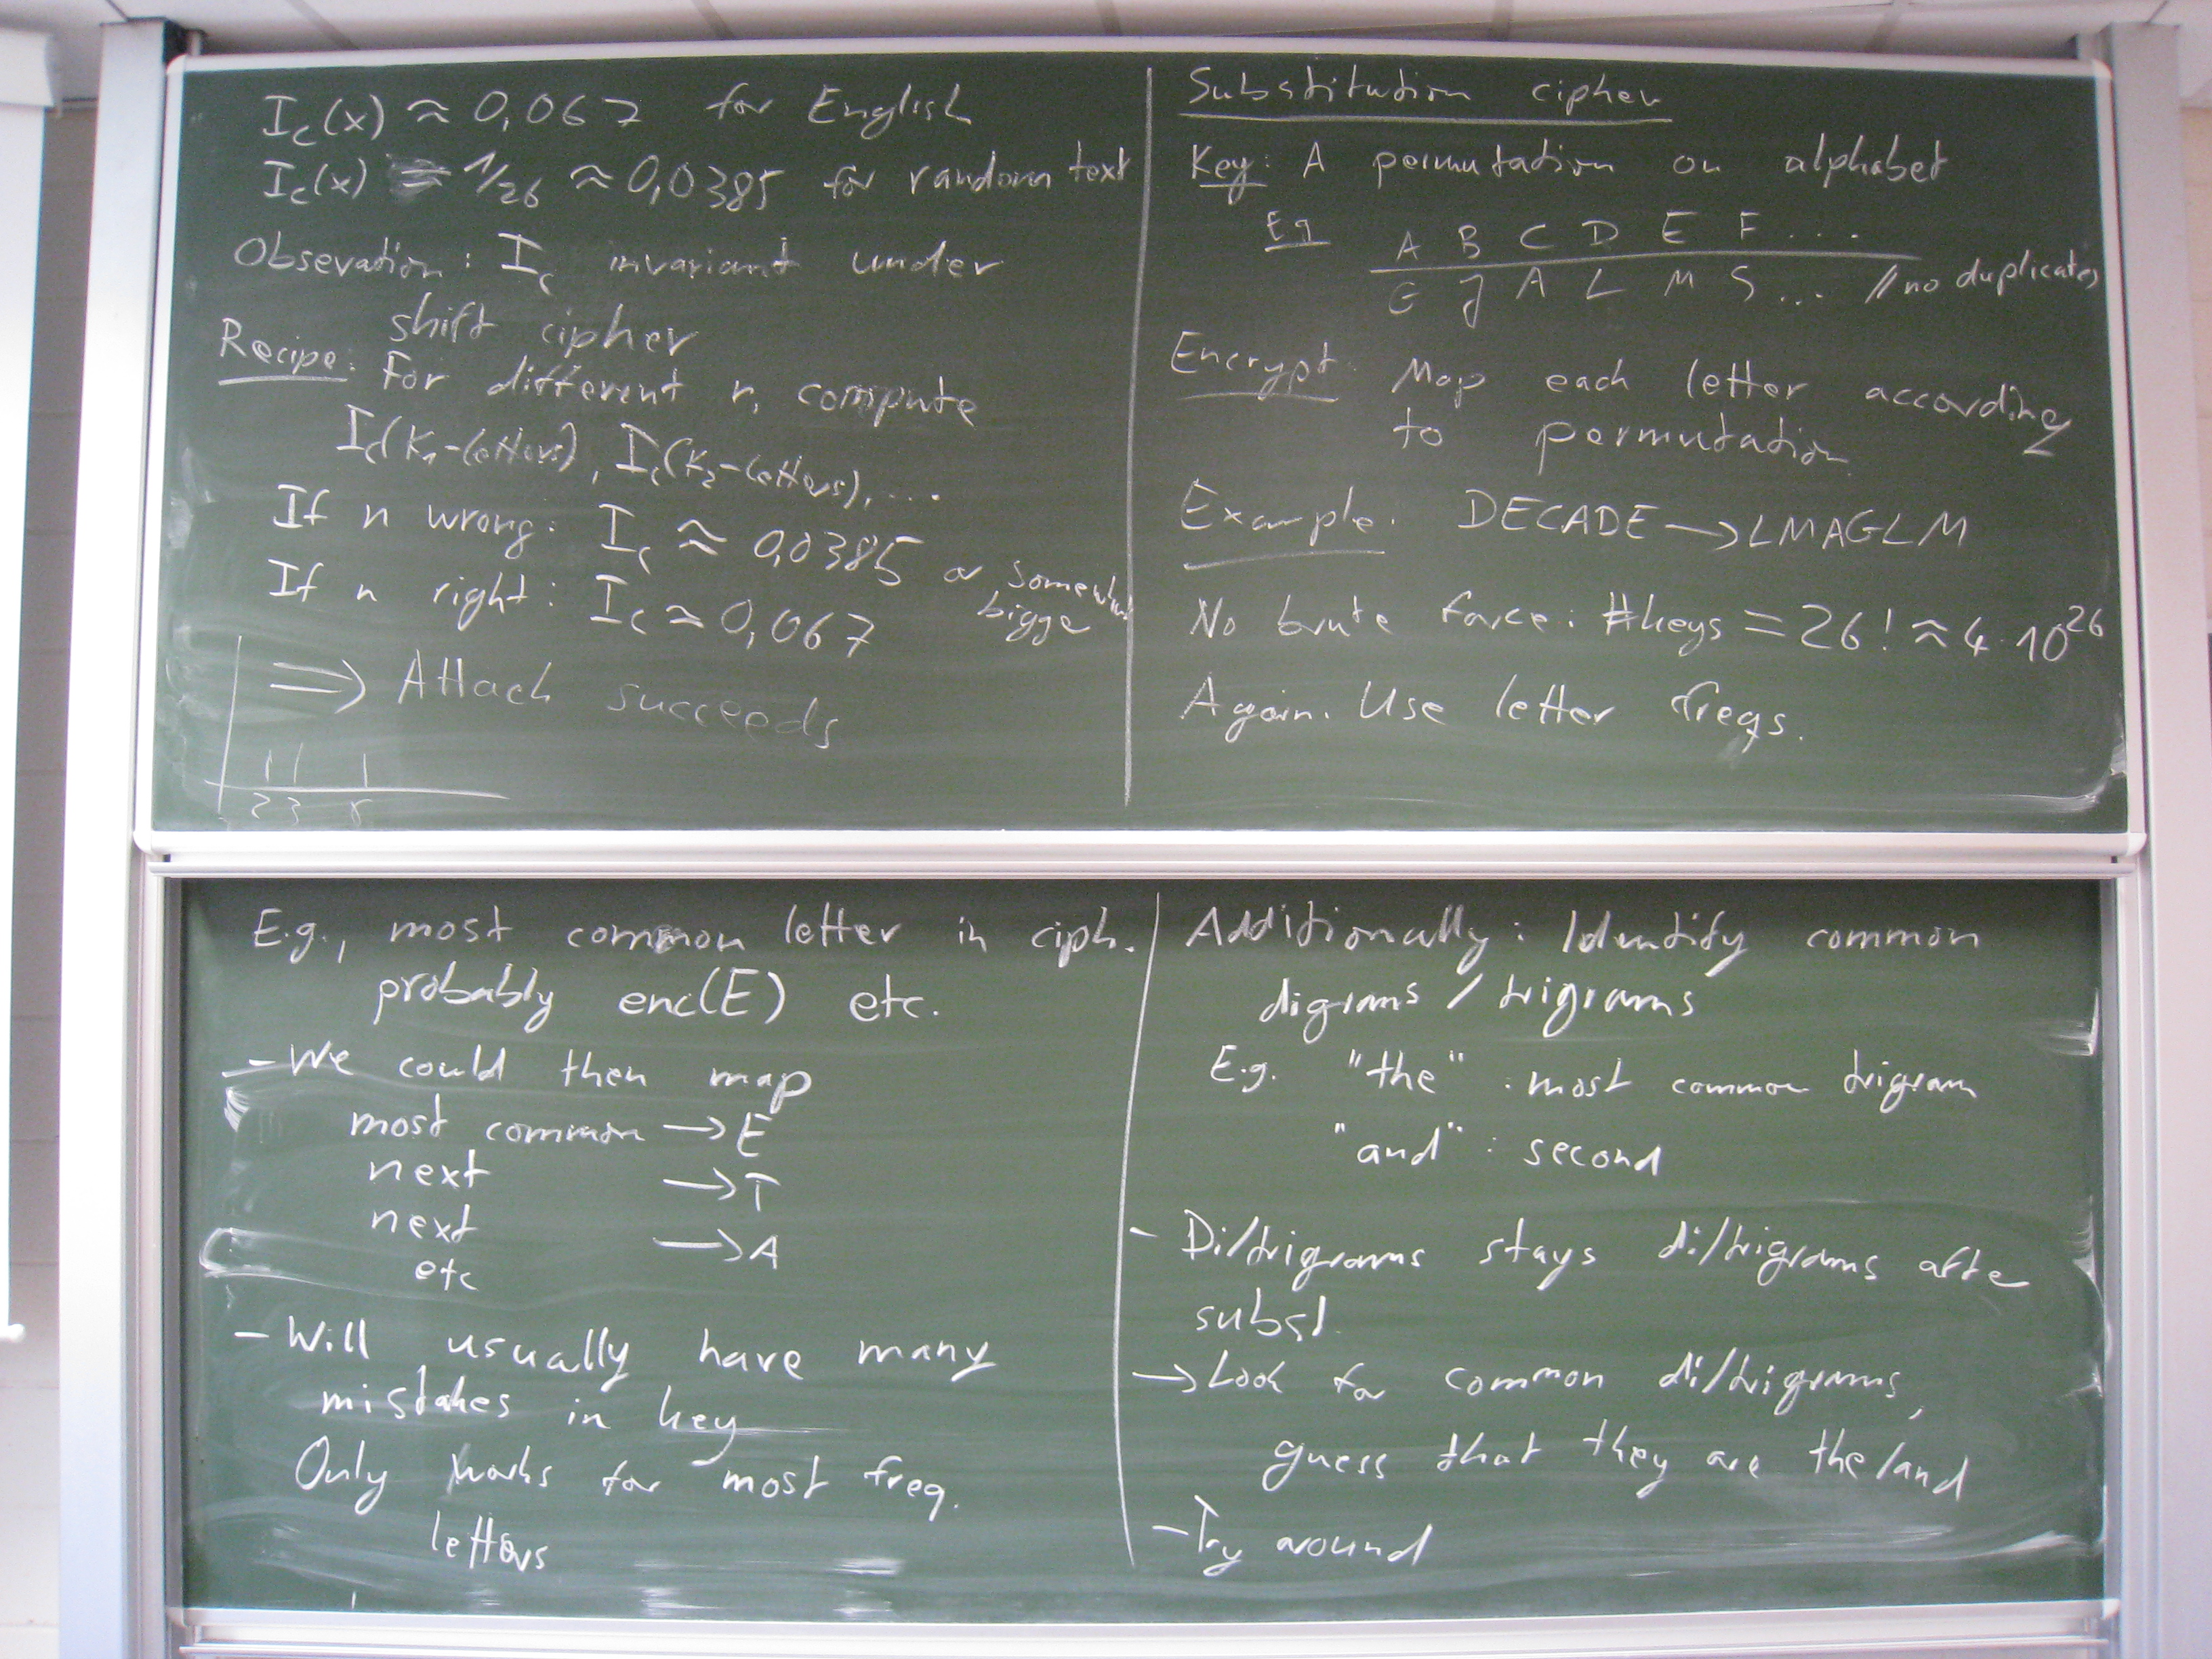 I_c(x) ≈ 0,067 for English
I_c(x) = 1/26 ≈ 0,0385 for random text
Obsevation: I_c invariant under
shift cipher
Recipe: For different n, compute
I_c(K_1-letters), I_c(K_2-letters), ...
If n wrong: I_c ≈ 0,0385 or somewhat
bigge
If n right: I_c ≈ 0,067
⇒ Attack succeeds
2 3 8
Substitution cipher
Key: A permutation on alphabet
Eg A B C D E F ...
G J A L M S ... // no duplicates
Encrypt: Map each letter according
to permutation
Example: DECADE → LMAGLM
No brute force: #keys = 26! ≈ 4·10^26
Again. Use letter freqs.
E.g., most common letter in ciph.
probably enc(E) etc.
- We could then map
most common → E
next → T
next → A
etc
- Will usually have many
mistakes in key
Only works for most freq.
letters
Additionally: Identify common
digrams / trigrams
E.g. "the": most common trigram
"and": second
- Di/trigrams stays di/trigrams afte
subst.
→ Look for common di/trigrams,
guess that they are the/and
- Try around